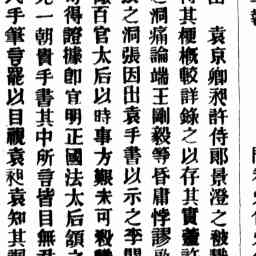 袁京卿昶許侍郎景澄之被戮
得其梗概較詳錄之以存其實蓋許
之洞痛論端王剛毅等昏庸悖謬
之洞張因出袁手書以示之李閱
百官太后以時事方艱未可殺
得證據卽宜明正國法太后頷之
一朝貴手書其中所言皆目無君
手筆言罷以目視袁昶袁知其